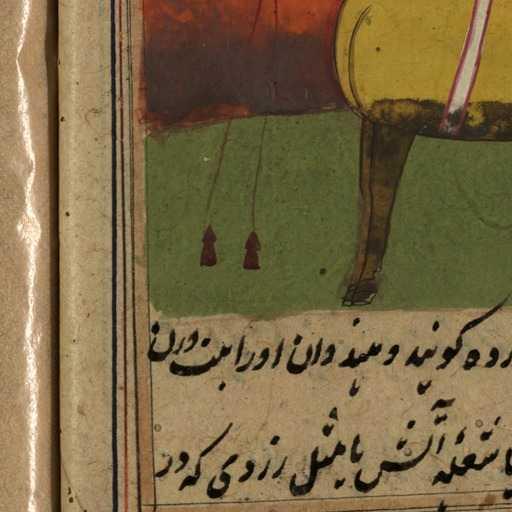 گویند و میبند وان اورا بست ورن
شعله آتش یا مثل زردی که در